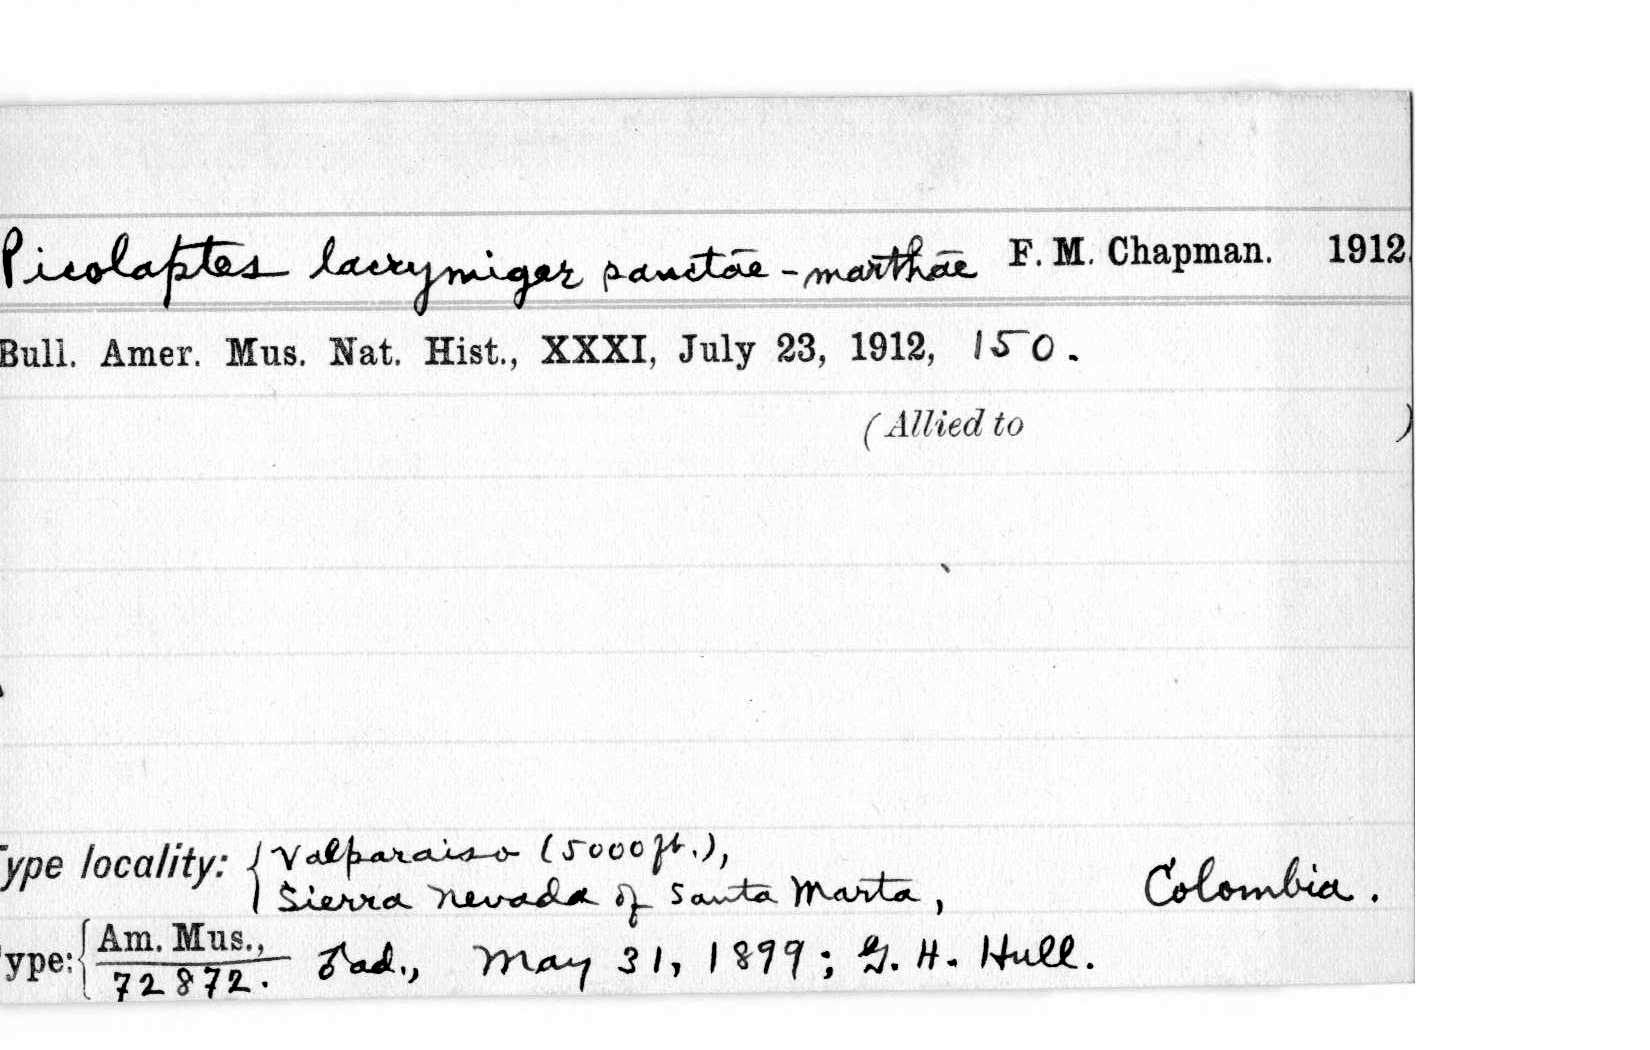 Picolaptes lacrymiger sanctae-marthae F. M. Chapman. 1912.
Bull. Amer. Mus. Nat. Hist., XXXI, July 23, 1912, 150.
(Allied to )
Type locality: { Valparaiso (5000 ft.),
Sierra Nevada of Santa Marta, Colombia.
ype: { Am. Mus., ad., May 31, 1899; G. H. Hull.
72872.